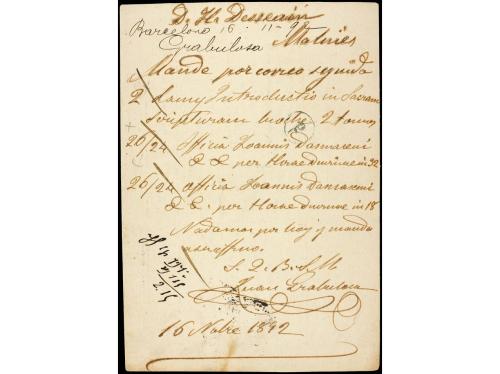 D. H. Dessain
Barcelona 16-11-9
Grabulosa Malines
Mande por correo seguida
2 Lamy Introductio in Sacram
Scripturam 2 tomos
26/24 Officia Joannis
per Horae Diurnae in 32
26/24 Officia Joannis
per Horae Diurnae in 18
Nada mas por hoy y mande
S. Q. B. S. M
Juan Grabulosa
16 Nbre 1892